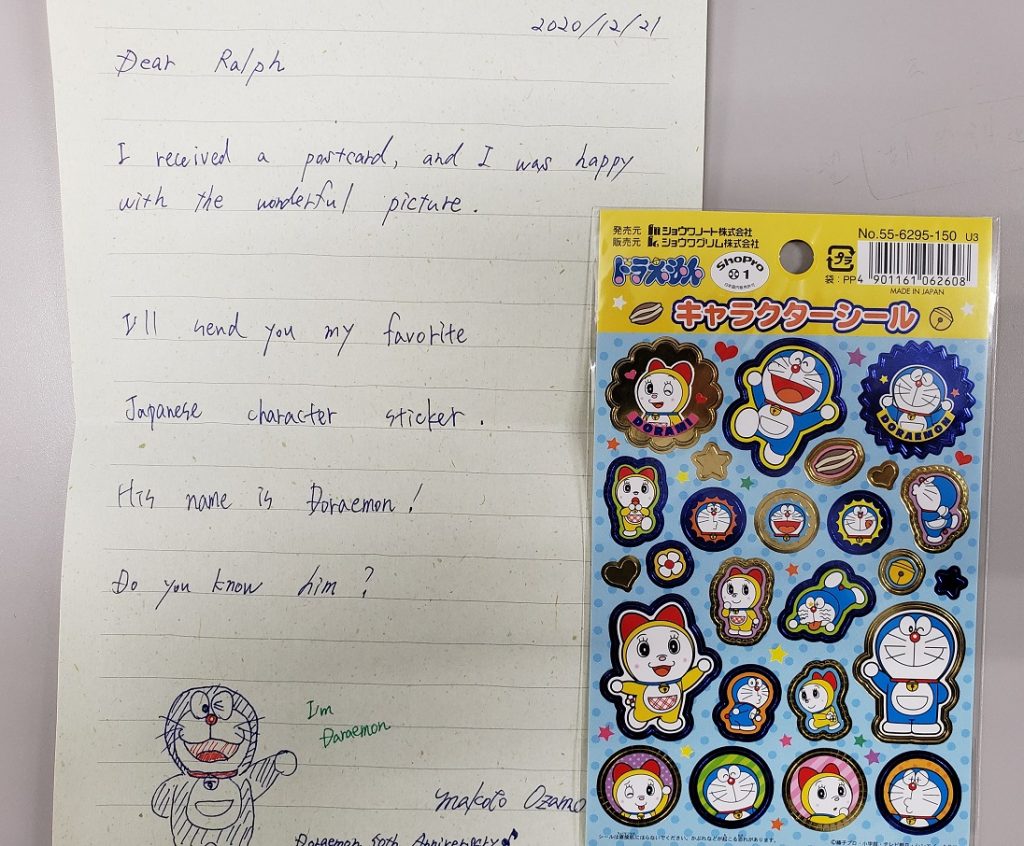 2020/12/21
Dear Ralph
I received a postcard, and I was happy
with the wonderful picture.
I'll send you my favorite
Japanese character sticker.
His name is Doraemon!
Do you know him?
I'm
Doraemon
Makoto Ozamo
Doraemon 50th Anniversary♪
発売元 ショウワノート株式会社
販売元 ショウワグリム株式会社
No.55-6295-150 U3
ドラえもん
ShoPro
1
プラ
袋:PP
4 901161 062608
MADE IN JAPAN
キャラクターシール
DORAMI
DORAEMON